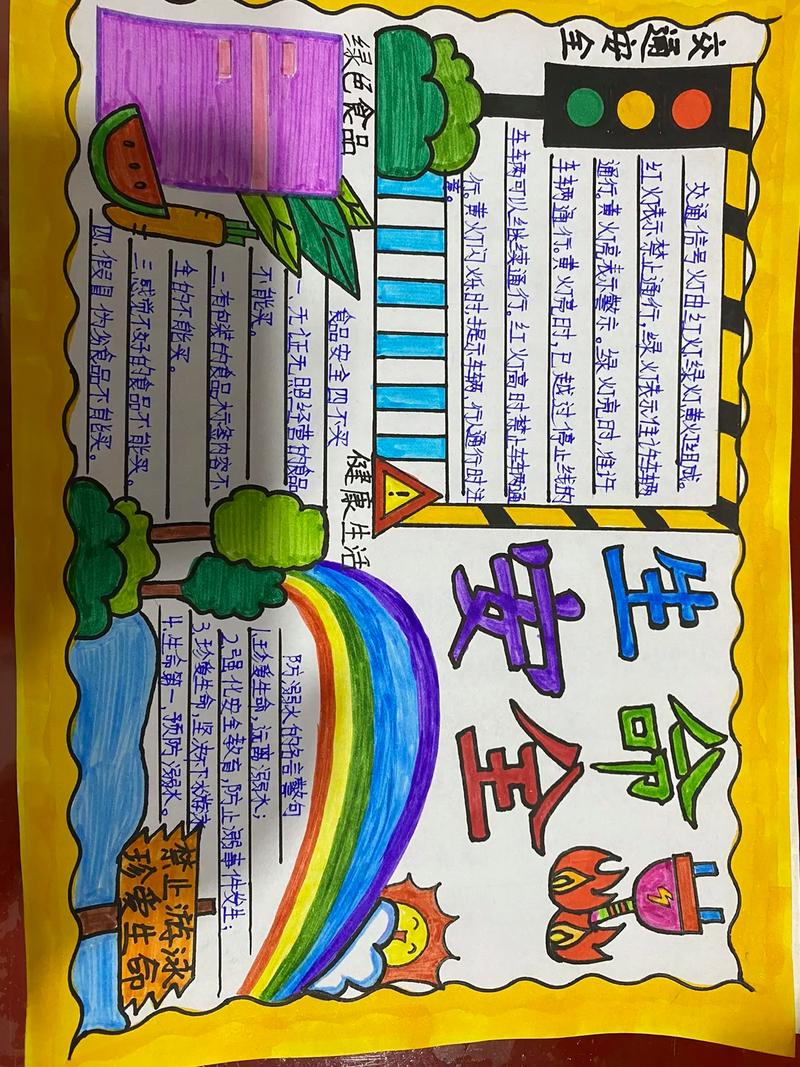 交通安全
交通信号灯由红灯绿灯黄灯组成。
红灯表示禁止通行,绿灯表示准许车辆
通行,黄灯亮表示警示。绿灯亮时,准许
车辆通行。黄灯亮时,已越过停止线的
车辆可以继续通行。红灯亮时禁止车辆通
行。黄灯闪烁时,提示车辆,行人通行时注
意。
生命
安全
绿色食品
健康生活
食品安全四不买
一、无证无照经营的食品
不能买。
二、有包装的食品标签内容不
全的不能买。
三、感觉不好的食品不能买。
四、假冒伪劣食品不能买。
防溺水的格言警句
1.珍爱生命,远离溺水;
2.强化安全教育,防止溺事件发生;
3.珍爱生命,坚决不水游泳
4.生命第一,预防溺水。
禁止游泳
珍爱生命